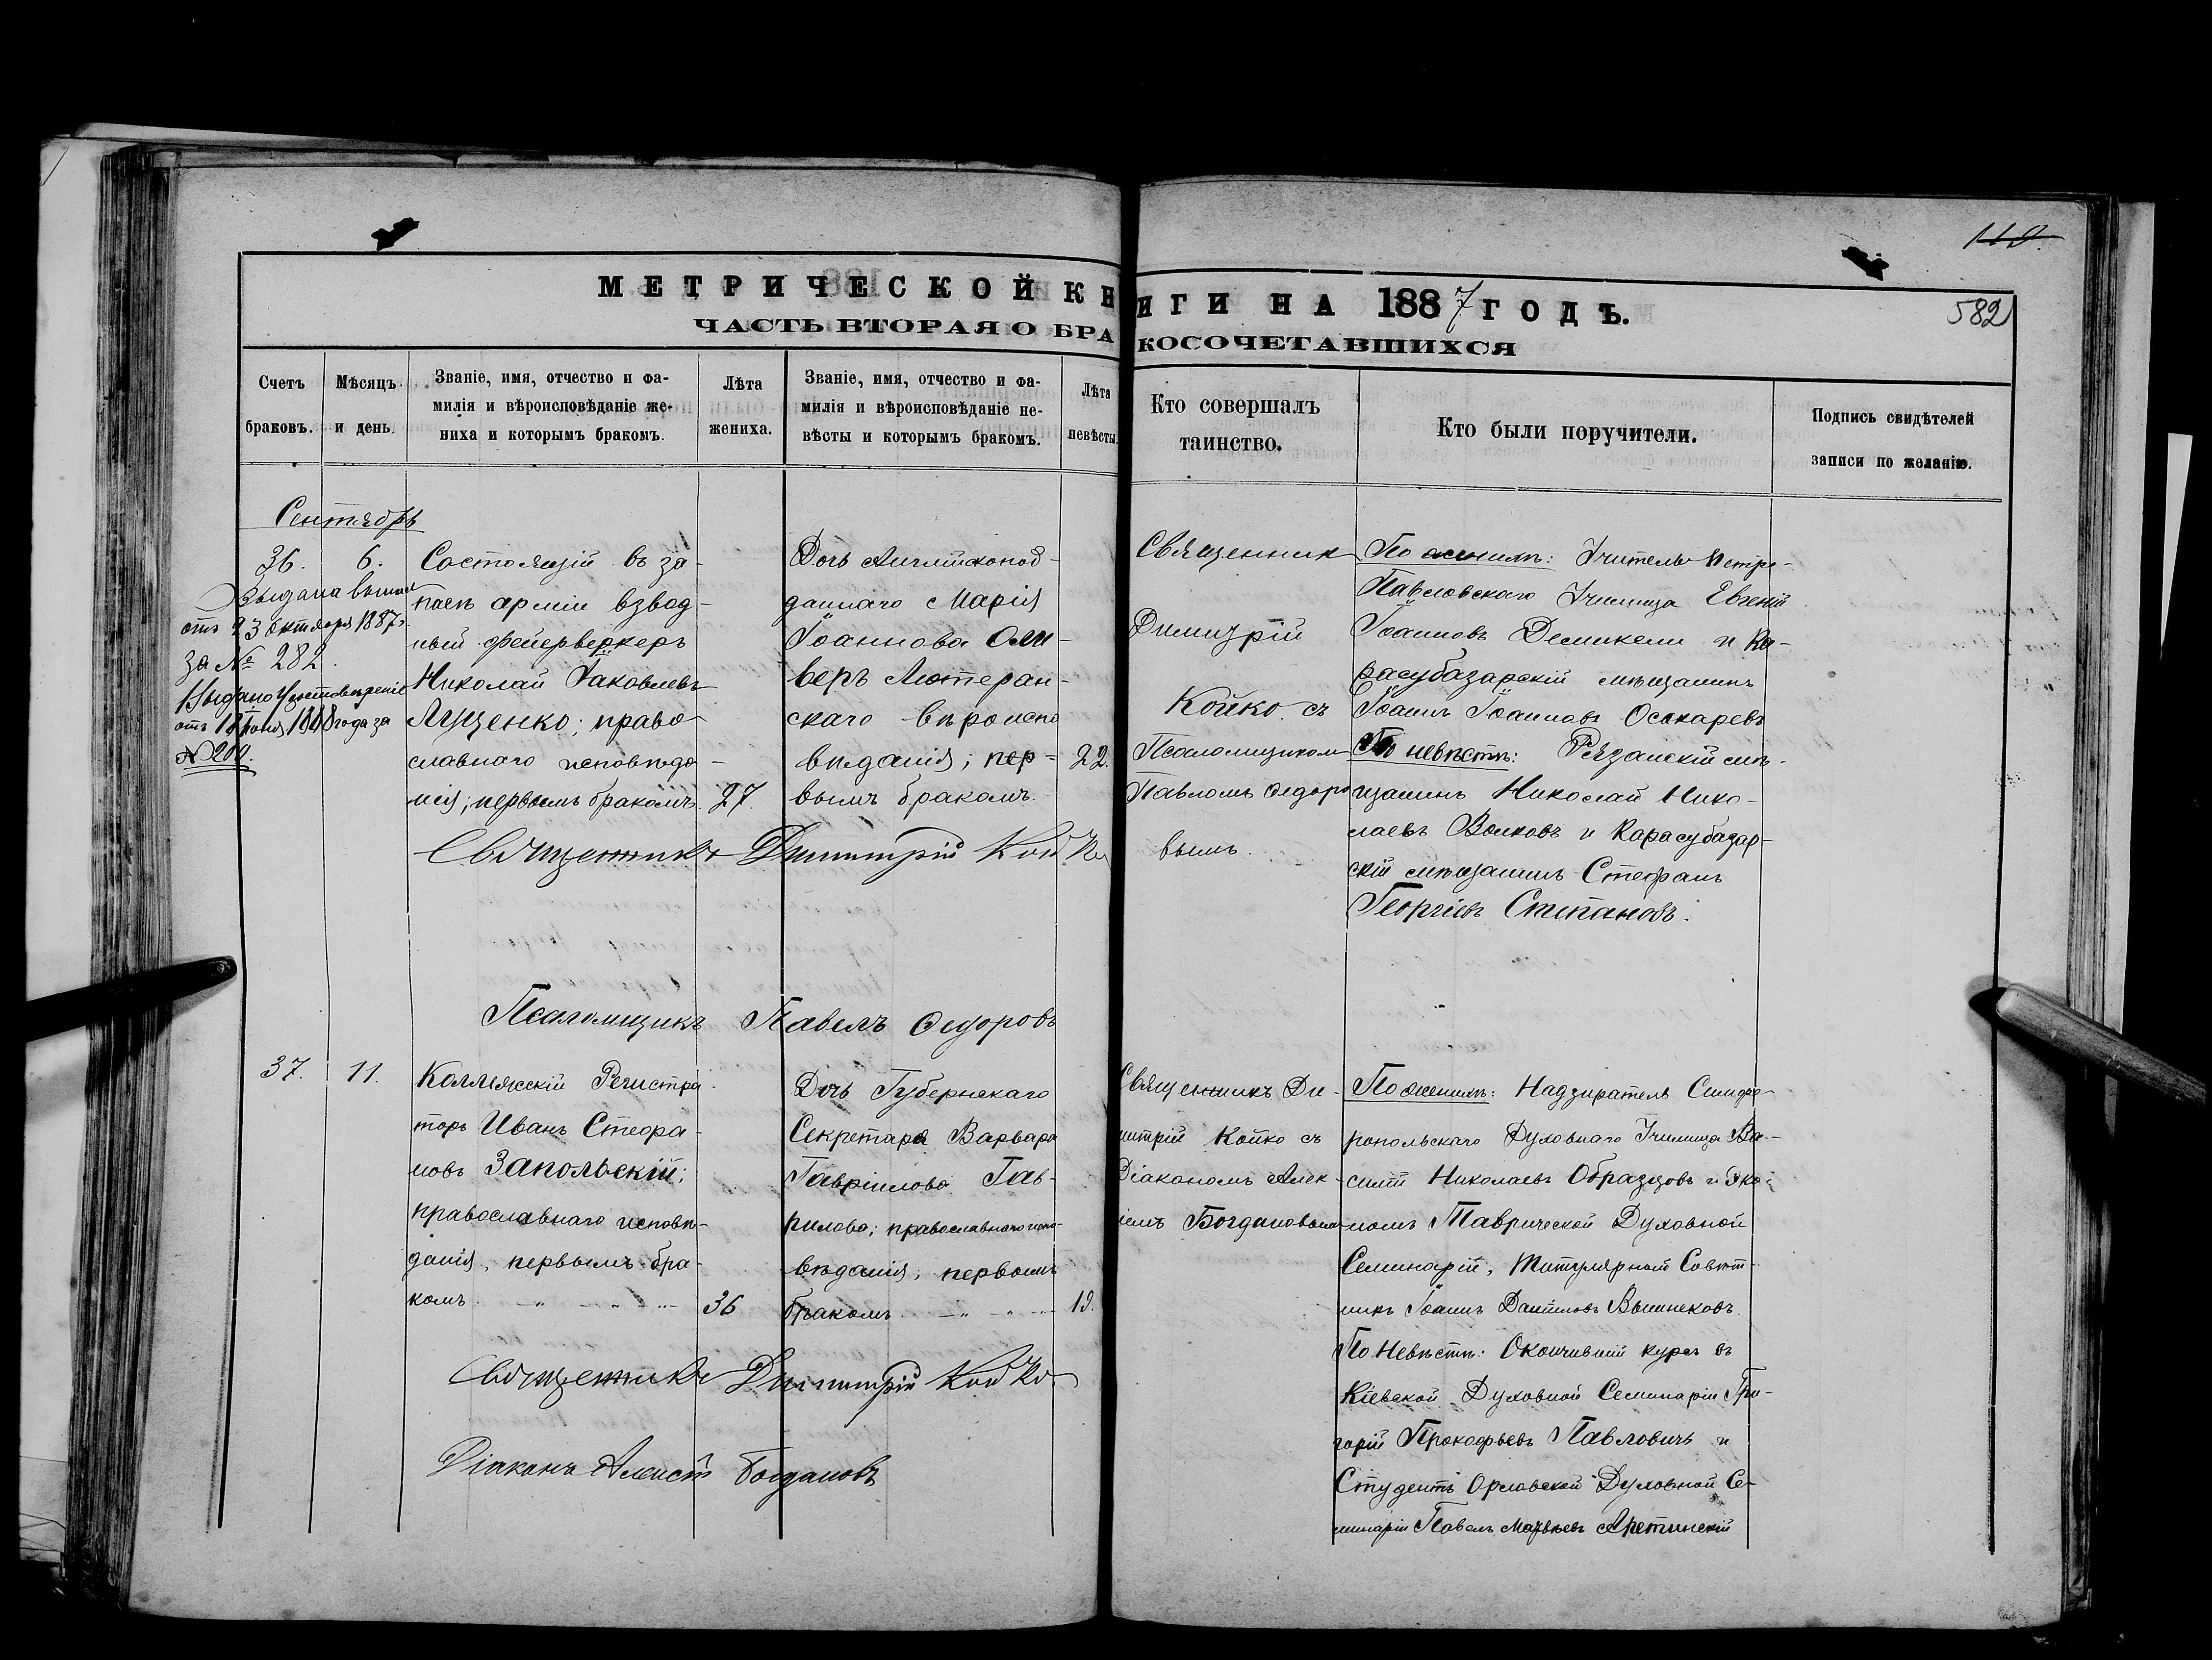 118.
МЕТРИЧЕСКОЙ КНИГИ НА 1887 ГОДЪ.
582
ЧАСТЬ ВТОРАЯ О БРАКОСОЧЕТАВШИХСЯ
Счетъ браковъ.
Мѣсяцъ и день.
Званіе, имя, отчество и фа-
милія и вѣроисповѣданіе же-
ниха и которымъ бракомъ.
Лѣта жениха.
Званіе, имя, отчество и фа-
милія и вѣроисповѣданіе не-
вѣсты и которымъ бракомъ.
Лѣта невѣсты.
Кто совершалъ
таинство.
Кто были поручители.
Подпись свидѣтелей
записи по желанію.
Сентябрь
36. 6.
Выдана
отъ 23 Октября 1887 г
за № 282
Выдано Удостовѣреніе
года за
№ 200.
Состоящій въ за-
пасѣ арміи взвод-
ный фейерверкеръ
Николай Яковлевъ
Лященко; право-
славнаго исповѣда-
нія; первымъ бракомъ. 27.
Дочь Англійскопод-
даннаго Марія
Іоаннова Оли-
веръ Лютеран-
скаго вѣроиспо
вѣданія; пер-
вымъ бракомъ. 22.
Священникъ Димитрій Койко
Псаломщикъ Павелъ Ѳедоровъ
Священник
Димитрій
Койко съ
Псаломщиком
Павломъ Ѳедоро
вымъ.
По женихѣ: Учитель Петро-
Павловскаго Училища Евгеній
Іоанновъ Демикели и Ка-
расубазарскій мѣщанинъ
Іоаннъ Іоанновъ Осакаревъ
По невѣстѣ: Рязанскій мѣ-
щанинъ Николай Нико-
лаевъ Волковъ и Карасубазар-
скій мѣщанинъ Стефанъ
Георгіевъ Степановъ.
37. 11.
Коллежскій Регистра-
торъ Иванъ Стефа-
новъ Запольскій;
православнаго исповѣ-
данія, первымъ бра-
комъ. 36
Дочь Губернскаго
Секретаря Варвара
Гавріилова Гав-
рилова; православнаго испо-
вѣданія; первымъ
бракомъ. 19.
Священникъ Димитрій Койко
Діаконъ Алексій Богдановъ
Священникъ Ди-
митрій Койко съ
Діакономъ Алек-
сіемъ Богдановымъ
По женихѣ: Надзиратель Симфе-
ропольскаго Духовнаго Училища Ва-
силій Николаевъ Образцовъ и Эко-
номъ Таврической Духовной
Семинаріи, Титулярный Совѣт-
никъ Іоаннъ Даніиловъ Вышнековъ.
По Невѣстѣ: Окончившій курсъ въ
Кіевской Духовной Семинаріи Гри-
горій Прокофьевъ Павловичъ и
Студентъ Орловской Духовной Се-
минаріи Павелъ Матвѣевъ Аретинскій